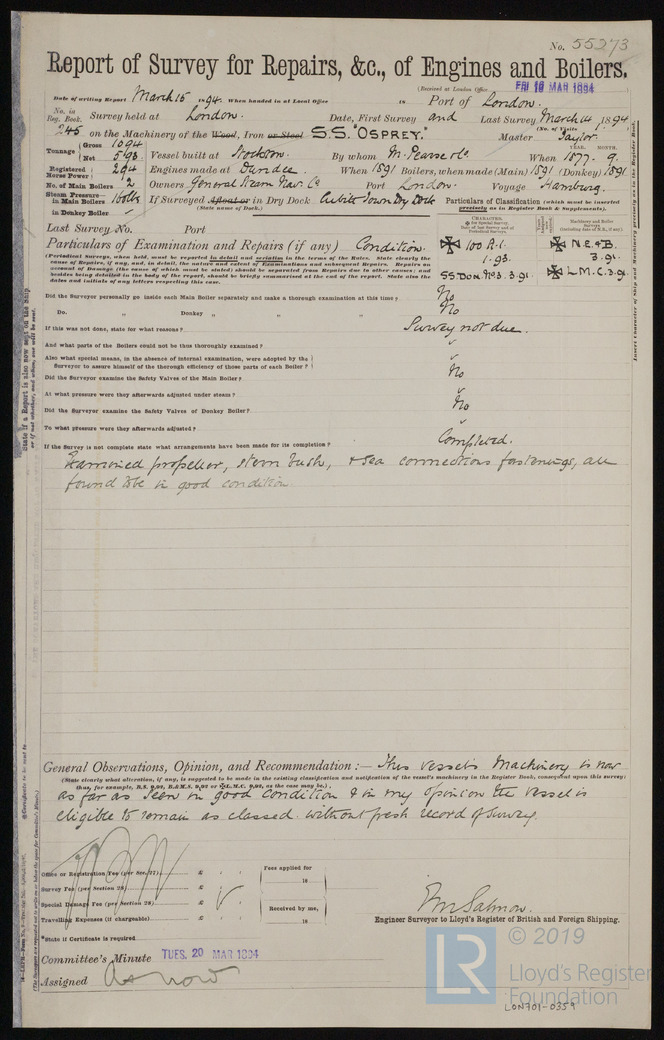 No. 55273
Report of Survey for Repairs, &c., of Engines and Boilers.
(Received at London Office FRI 16 MAR 1894
Date of writing Report March 15 1894. When handed in at Local Office 18 Port of London.
No. in Reg. Book. Survey held at London. Date, First Survey and Last Survey March 14 1894
(No. of Visits
245 on the Machinery of the Wood, Iron or Steel S.S. "OSPREY." Master Taylor.
Tonnage Gross 1094 Net 593 Vessel built at Stockton. By whom M. Pearse & Co. When 1877. 9. YEAR. MONTH.
Registered Horse Power 294 Engines made at Dundee. When 1891 Boilers, when made (Main) 1891 (Donkey) 1891
No. of Main Boilers 2 Owners General Steam Nav. Co Port London. Voyage Hamburg.
Steam Pressure in Main Boilers 160 lbs If Surveyed Afloat or in Dry Dock Cubitt Town Dry Dock
(State name of Dock.)
in Donkey Boiler
Particulars of Classification (which must be inserted precisely as in Register Book & Supplements).
CHARACTER.
for Special Survey.
Date of last Survey and of Periodical Surveys.
Machinery and Boiler Surveys
(including date of N.B., if any).
100 A.1. 1.93
SS DON. No 3. 3.91
N.E. & B. 3.91.
L.M.C. 3.91
Last Survey No. Port
Particulars of Examination and Repairs (if any) Condition.
(Periodical Surveys, when held, must be reported in detail and seriatim in the terms of the Rules. State clearly the
cause of Repairs, if any, and, in detail, the nature and extent of Examinations and subsequent Repairs. Repairs on
account of Damage (the cause of which must be stated) should be separated from Repairs due to other causes; and
besides being detailed in the body of the report, should be briefly summarised at the end of the report. State also the
dates and initials of any letters respecting this case.
Did the Surveyor personally go inside each Main Boiler separately and make a thorough examination at this time? No
Do. „ Donkey „ „ „ No
If this was not done, state for what reasons? Survey not due.
And what parts of the Boilers could not be thus thoroughly examined?
Also what special means, in the absence of internal examination, were adopted by the
Surveyor to assure himself of the thorough efficiency of those parts of each Boiler?
Did the Surveyor examine the Safety Valves of the Main Boiler? No
At what pressure were they afterwards adjusted under steam?
Did the Surveyor examine the Safety Valves of Donkey Boiler? No
To what pressure were they afterwards adjusted?
If the Survey is not complete state what arrangements have been made for its completion? Completed.
Examined propeller, stern bush, & sea connections fastenings, all
found to be in good condition.
General Observations, Opinion, and Recommendation :— This vessel's Machinery is now
(State clearly what alteration, if any, is suggested to be made in the existing classification and notification of the vessel's machinery in the Register Book, consequent upon this survey;
thus, for example, B.S. 9,92, B.&M.S. 9,92 or L.M.C. 9,92, as the case may be.)
as far as seen in good condition & in my opinion the vessel is
eligible to remain as classed without fresh record of survey.
Office or Registration Fee (per Sec. 27) £
Survey Fee (per Section 28) £
Special Damage Fee (per Section 28) £
Travelling Expenses (if chargeable) £
Fees applied for
18
Received by me,
18
Engineer Surveyor to Lloyd's Register of British and Foreign Shipping.
*State if Certificate is required
Committee's Minute TUES. 20 MAR 1894
Assigned As now
LR
© 2019
Lloyd's Register
Foundation
LON701-0359